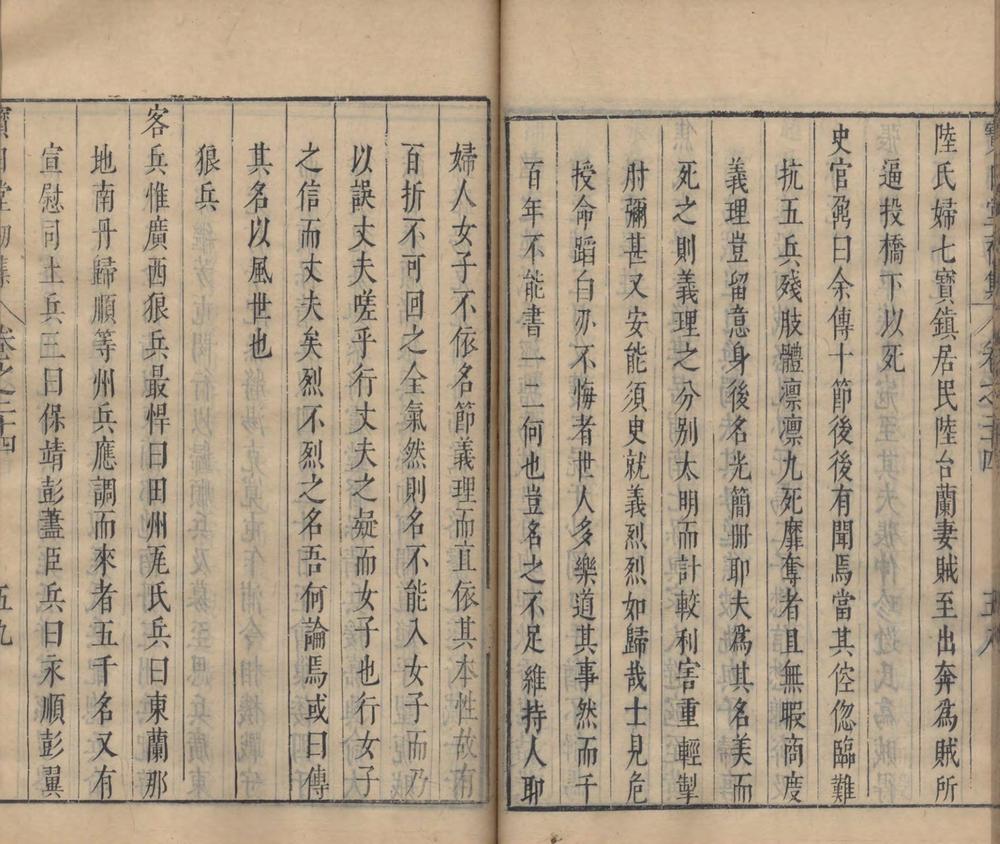 陸氏婦七寶鎮居民陸台蘭妻賊至出奔為賊所
逼投橋下以死
史官弼曰余傳十節後後有聞焉當其倥偬臨難
抗五兵殘肢體凛凛九死靡奪者且無暇商度
義理豈留意身後名光簡册耶夫為其名美而
死之則義理之分别太明而計較利害重輕掣
肘彌甚又安能須臾就義烈烈如歸哉士見危
授命蹈白刃不悔者世人多樂道其事然而千
百年不能書一二何也豈名之不足維持人耶
婦人女子不依名節義理而直依其本性故有
百折不可回之全氣然則名不能入女子而乃
以誤丈夫嗟乎行丈夫之疑而女子也行女子
之信而丈夫矣烈不烈之名吾何論焉或曰傳
其名以風世也
狼兵
客兵惟廣西狼兵最悍曰田州瓦氏兵曰東蘭那
地南丹歸順等州兵應調而來者五千名又有
宣慰司土兵三曰保靖彭藎臣兵曰永順彭翼
寶日堂初集 卷之二十四 五九